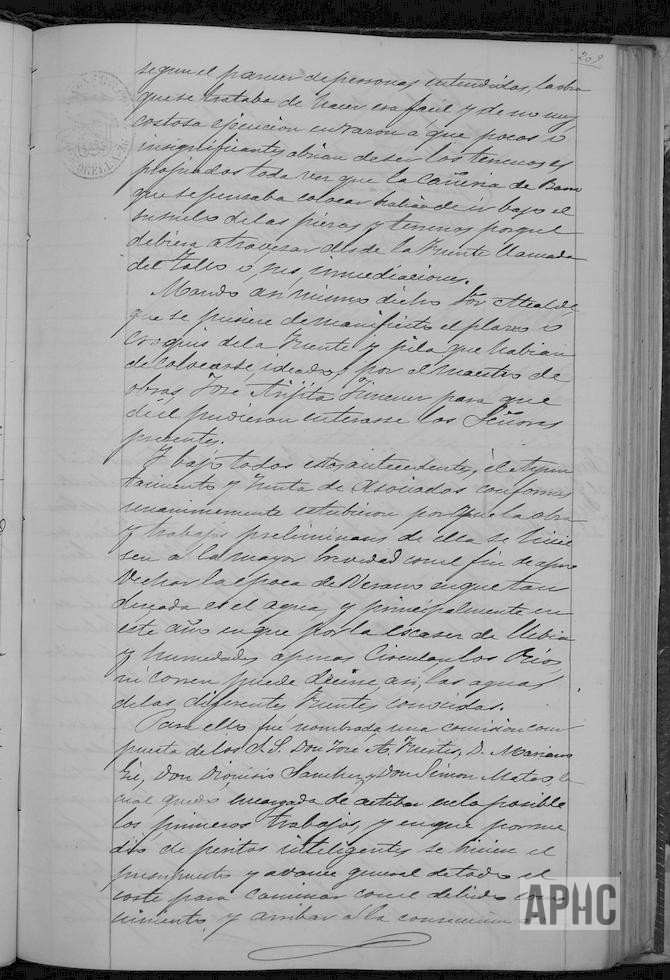 209
segun el parecer de personas entendidas, la obra
que se trataba de hacer era facil y de no muy
costosa ejecucion en razon a que pocos o
insignificantes abian de ser los terrenos es
propiados toda vez que la Cañeria de Barro
que se pensaba colocar habian de ir bajo el
subsuelo de las piezas y terrenos porque
debiera atravesar desde la Fuente llamada
del Tollo o sus inmediaciones.
Mando asi mismo dicho Sor Alcalde,
que se pusiese de manifiesto el plano o
croquis de la Fuente y pila que habian
de colocarse, ideados por el maestro de
obras, José Arijita Jimenez para que
de el pudieran enterarse los Señores
presentes.
Y bajo todos estos antecedentes, el Ayun
tamiento y Junta de Asociados conformes
unanimemente estuvieron porque la obra
y trabajos preliminares de ella se hicie
sen a la mayor brevedad con el fin de apro
vechar la epoca de Verano en que tan
deseada es el agua, y principalmente en
este año en que por la escasez de llubia
y humedades apenas circulan los Rios,
ni corren puede decirse asi, las aguas
de las diferentes Fuentes conocidas.
Para ello fué nombrada una comision com
puesta de los S.S. Don José A. Fuertes, D. Mariano
Gil, Don Dionisio Sanchez y Don Simon Mateo, la
cual quedó encargada de actibar en lo posible
los primeros trabajos, y en que por me
dio de peritos inteligentes se hiciese el
presupuesto y avance general de todo el
coste para caminar con el debido cono
cimiento y arribar a la consecucion
APHC